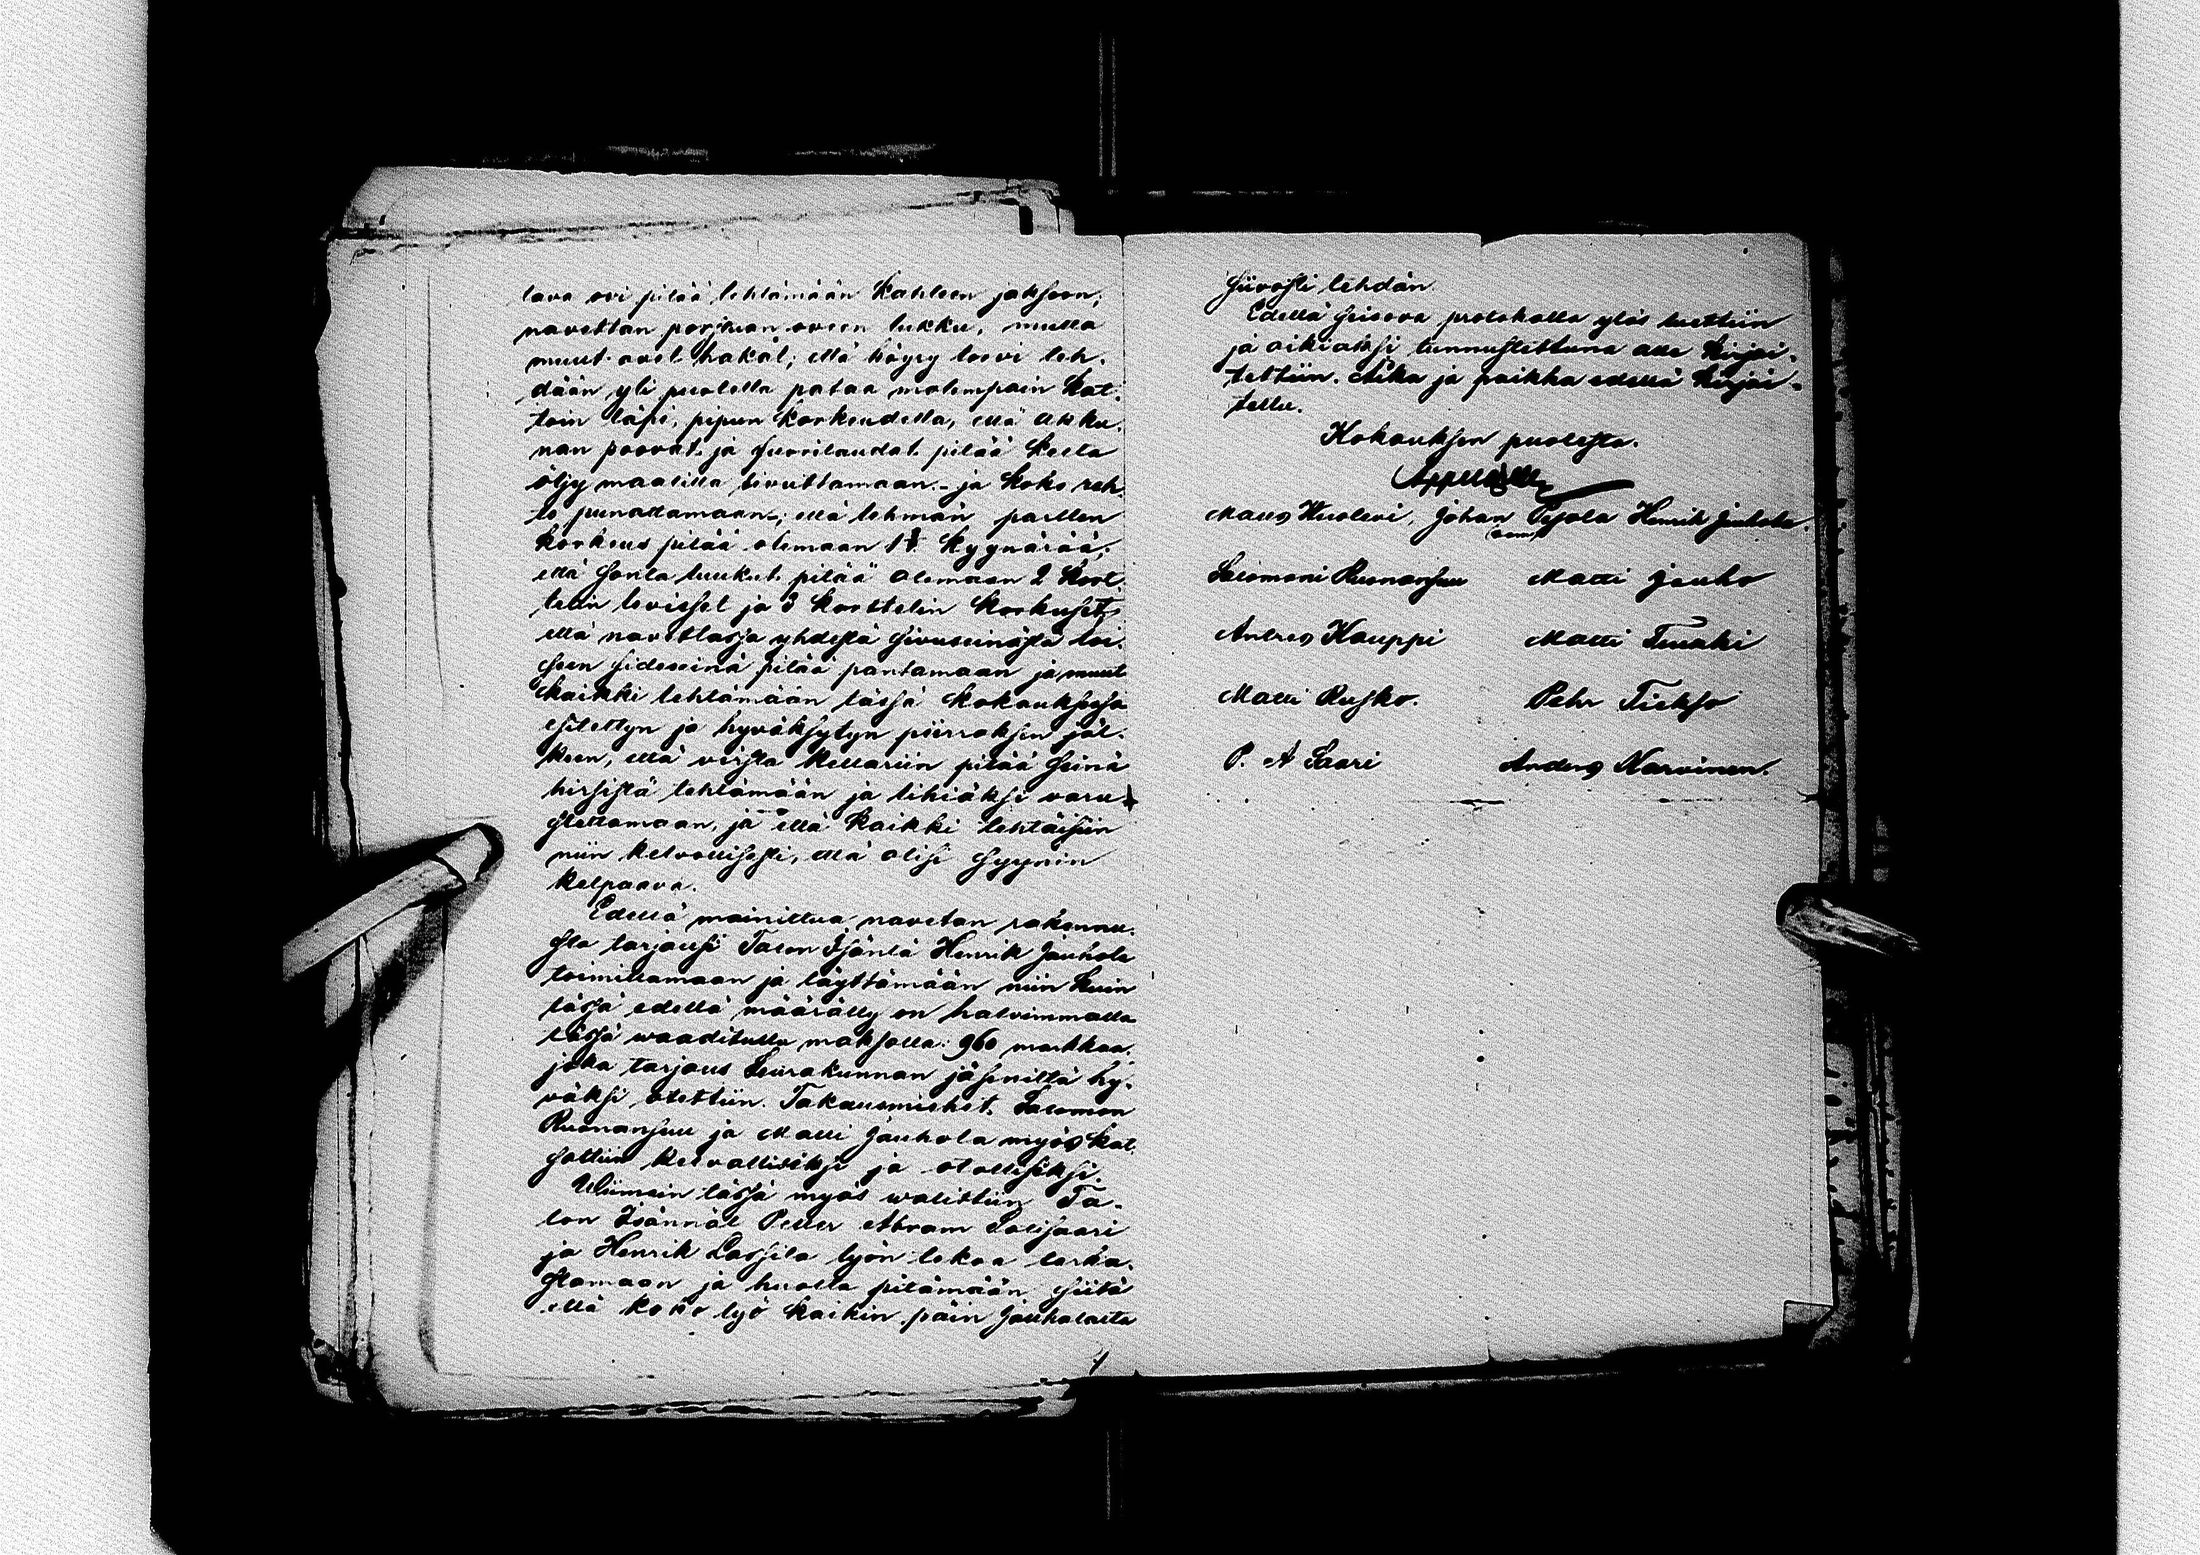 tava ovi pitää tehtämään kahteen jaksoon;
navettan porstuan oveen lukku, mutta
muut ovet hakat; että höyry torvi teh-
dään yli puolella pataa molempain kat-
toin läpi, pipun korkeudella, että akku-
nan poovat ja vuorilaudat pitää keita
öljy maalilla sivuttamaan - ja koko reh-
to punattamaan; että lehmän partten
korkeus pitää olemaan 1½ kyynärää;
että sonta luukut pitää olemaan 2 kort-
telin leviset ja 3 korttelin korkuset,
että navettassa yhdestä sivuseinästä toi-
seen sideseinä pitää pantamaan ja muut
kaikki tehtämään tässä kokouksessa
esitettyn ja hyväksytyn piirroksen jäl-
keen, että virsta kellariin pitää seinä
hirsistä tehtämään ja tihiäksi varu-
stettamaan, ja että kaikki tehtäisiin
niin kelvollisesti, että olisi syynin
kelpaava.
Edellä mainittua navetan rakennu-
sta tarjousi Talon Isäntä Henrik Jauhola
toimittamaan ja täyttämään niin kuin
tässä edellä määrätty on halvimmalla
tässä waaditulla maksolla: 960 markkaa,
joka tarjous Seurakunnan jäseniltä hy-
väksi otettiin. Takausmiehet Salomon
Ruonansuu ja Matti Jauhola myös kat-
sottiin kelvollisiksi ja otollisiksi.
Wiimein tässä myös walittiin Ta-
lon Isännät Petter Abram Salisaari
ja Henrik Lassila työn tekoa tarka-
stamaan ja huolta pitämään siitä
että koko työ kaikin päin Jauholalta
siivosti tehdän.
Edellä seisova protokolla ylös luettiin
ja oikiaksi tunnustettuna alle kirjoi-
tettiin. Aika ja paikka edellä kirjoi-
tettu.
Kokouksen puolesta.
Matts Huolevi, Johan Pejola Henrik Jauhola.
Salomoni Ruonansuu Matti Jauho
Andres Kauppi Matti Turaki
Matti Rusko. Pehr Tiekso
P. A Saari Anders Narvinen.